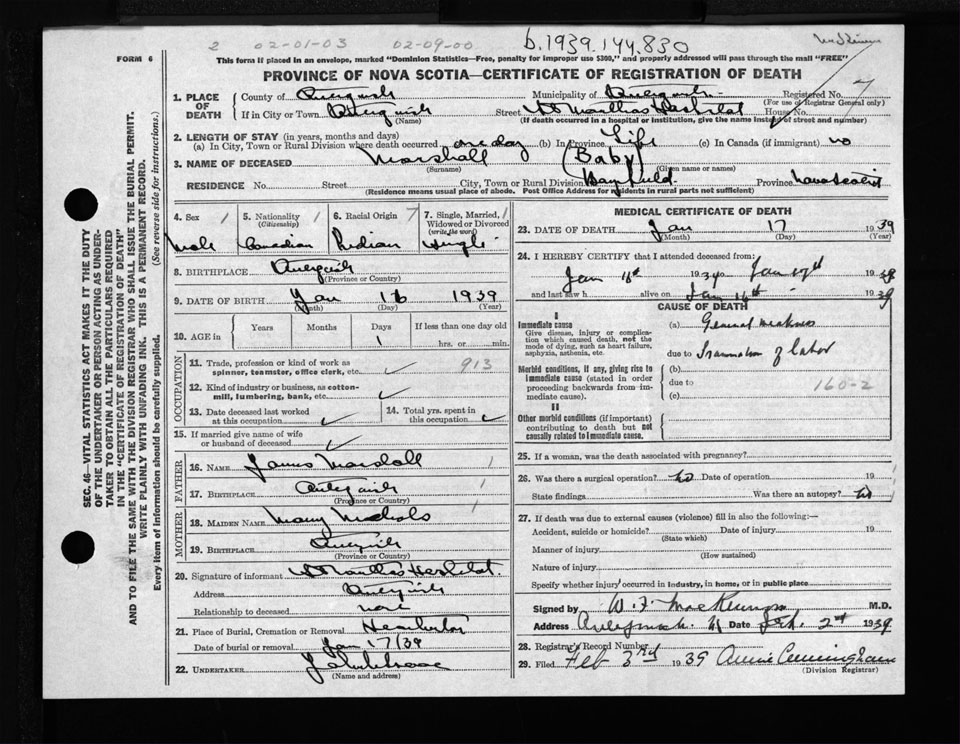 2 02-01-03 02-09-00 b.1939.144.830
FORM 6
This form if placed in an envelope, marked "Dominion Statistics—Free, penalty for improper use $300," and properly addressed will pass through the mail "FREE"
PROVINCE OF NOVA SCOTIA—CERTIFICATE OF REGISTRATION OF DEATH
1. PLACE OF DEATH
County of Municipality of Registered No. 7
(For use of Registrar General only)
If in City or Town Street House No.
(Name) (If death occurred in a hospital or institution, give the name instead of street and number)
2. LENGTH OF STAY (in years, months and days)
(a) In City, Town or Rural Division where death occurred one day (b) In Province Life (c) In Canada (if immigrant) no
3. NAME OF DECEASED Marshall (Baby)
(Surname) (Given name or names)
RESIDENCE No. Street City, Town or Rural Division Bayfield Province Nova Scotia
(Residence means usual place of abode. Post Office Address for residents in rural parts not sufficient)
4. Sex 1 Male
5. Nationality 1 (Citizenship) Canadian
6. Racial Origin 7
7. Single, Married, 1 Widowed or Divorced (write the word) Single
8. BIRTHPLACE
(Province or Country)
9. DATE OF BIRTH Jan 16 1939
(Month) (Day) (Year)
10. AGE in Years Months Days 1 If less than one day old hrs. or min.
OCCUPATION
11. Trade, profession or kind of work as spinner, teamster, office clerk, etc. ✓ 913
12. Kind of industry or business, as cotton-mill, lumbering, bank, etc. ✓
13. Date deceased last worked at this occupation ✓
14. Total yrs. spent in this occupation ✓
15. If married give name of wife or husband of deceased ✓
FATHER
16. NAME James Marshall 1
17. BIRTHPLACE
(Province or Country) 1
MOTHER
18. MAIDEN NAME Mary Nichols
19. BIRTHPLACE
(Province or Country)
20. Signature of informant
Address
Relationship to deceased none
21. Place of Burial, Cremation or Removal
Date of burial or removal Jan 17/39
22. UNDERTAKER John Isaac
(Name and address)
MEDICAL CERTIFICATE OF DEATH
23. DATE OF DEATH Jan 17 1939
(Month) (Day) (Year)
24. I HEREBY CERTIFY that I attended deceased from:
Jan 16th 1939 to Jan 17th 1939
and last saw h alive on Jan 16th 1939
CAUSE OF DEATH
I
Immediate cause
Give disease, injury or complication which caused death, not the mode of dying, such as heart failure, asphyxia, asthenia, etc.
(a) General weakness
due to of labor
Morbid conditions, if any, giving rise to immediate cause (stated in order proceeding backwards from immediate cause).
(b)
due to 160-2
(c)
II
Other morbid conditions (if important) contributing to death but not causally related to immediate cause.
25. If a woman, was the death associated with pregnancy?
26. Was there a surgical operation? No Date of operation 19
State findings Was there an autopsy? No
27. If death was due to external causes (violence) fill in also the following:—
Accident, suicide or homicide? Date of injury 19
(State which)
Manner of injury
(How sustained)
Nature of injury
Specify whether injury occurred in industry, in home, or in public place
Signed by W. F. MacKinnon M.D.
Address Date Feb. 2nd 1939
28. Registrar's Record Number
29. Filed Feb 3rd 1939 Annie Cunningham
(Division Registrar)
SEC. 46—VITAL STATISTICS ACT MAKES IT THE DUTY
OF THE UNDERTAKER OR PERSON ACTING AS UNDERTAKER TO OBTAIN ALL THE PARTICULARS REQUIRED
IN THE "CERTIFICATE OF REGISTRATION OF DEATH"
AND TO FILE THE SAME WITH THE DIVISION REGISTRAR WHO SHALL ISSUE THE BURIAL PERMIT.
WRITE PLAINLY WITH UNFADING INK. THIS IS A PERMANENT RECORD.
Every item of information should be carefully supplied. (See reverse side for instructions.)